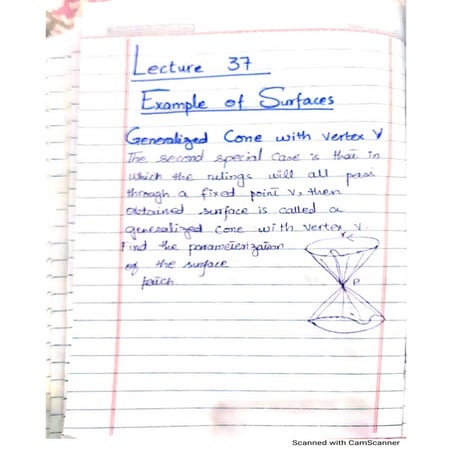 Lecture 37
Example of Surfaces
Generalized Cone with vertex V
The second special case is that in
which the rulings will all pass
through a fixed point V, then
obtained surface is called a
generalized cone with vertex V.
Find the parameterization
of the surface
patch
P
Scanned with CamScanner